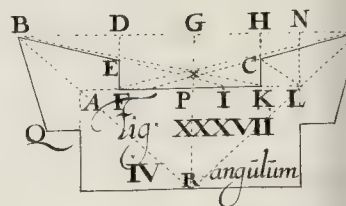 B D G H N
E C
A F P I K L
Q fig. XXXVII
IV R angulum